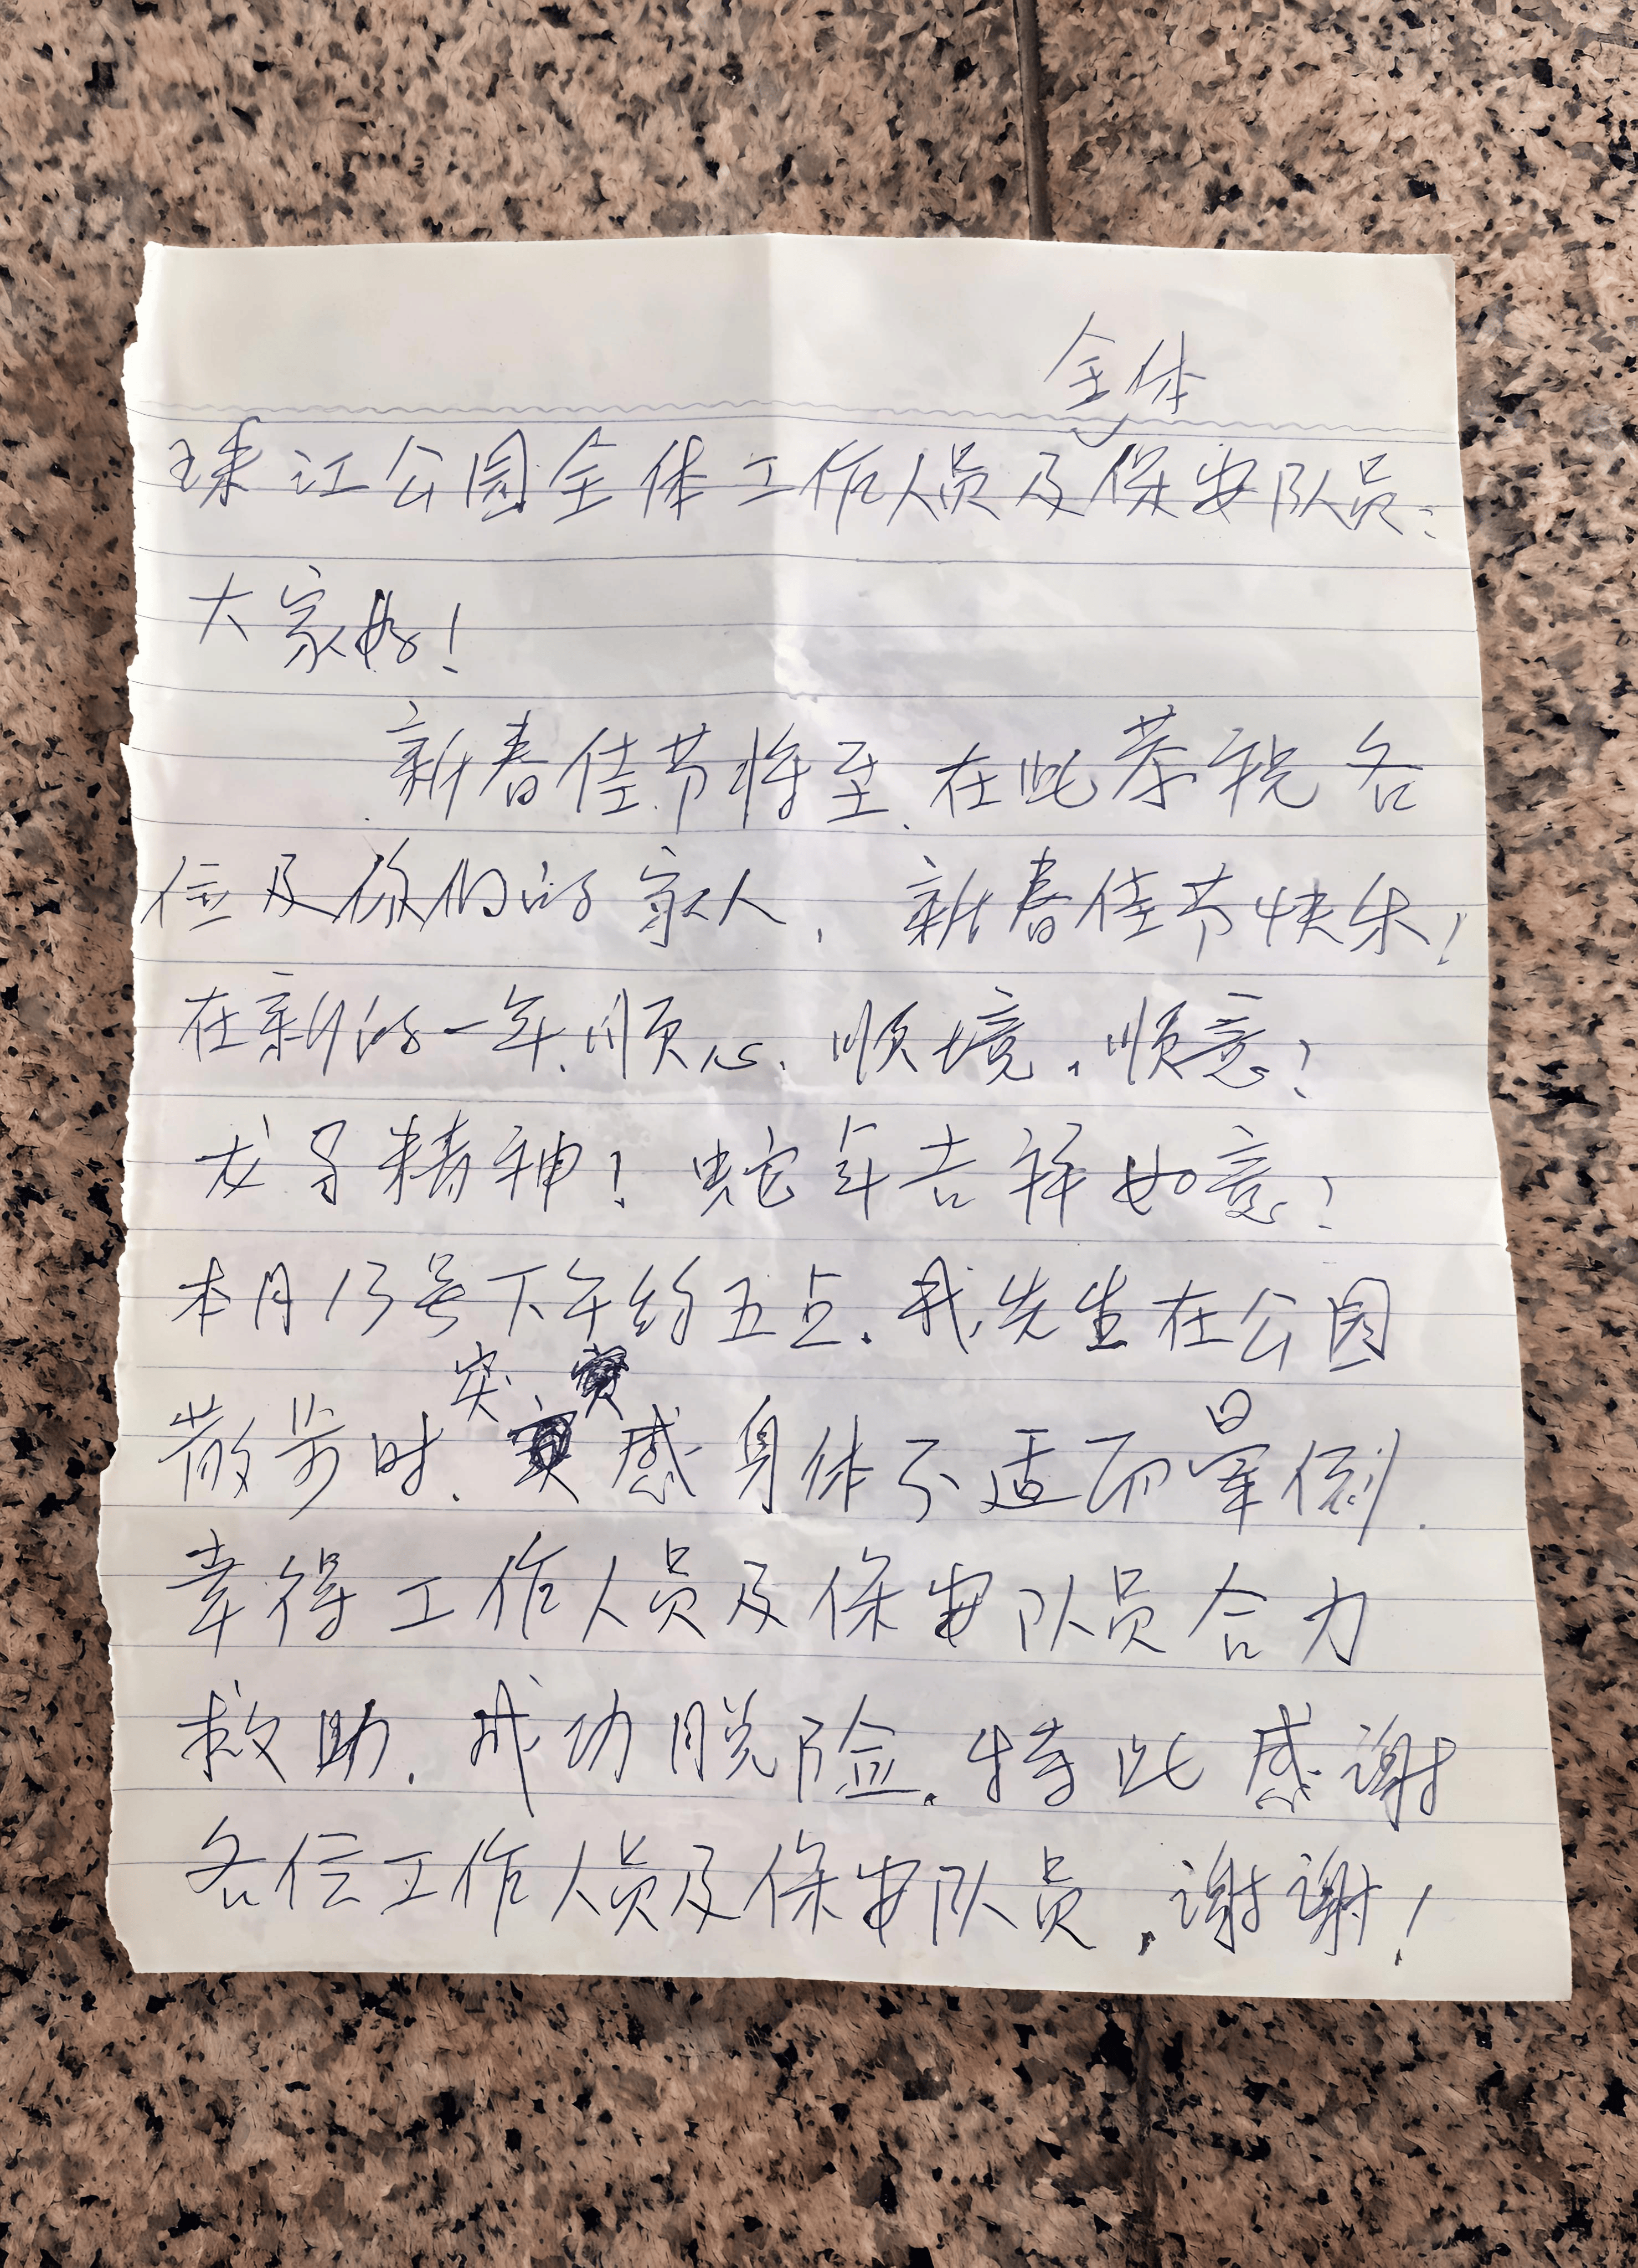 全体
珠江公园全体工作人员及保安队员：
大家好！
新春佳节将至．在此恭祝各
位及你们的家人，新春佳节快乐！
在新的一年、顺心、顺境、顺意！
龙马精神！蛇年吉祥如意！
本月13号下午约五点．我先生在公园
突
散步时．感身体不适而晕倒．
幸得工作人员及保安队员合力
救助．成功脱险．特此感谢
各位工作人员及保安队员，谢谢！